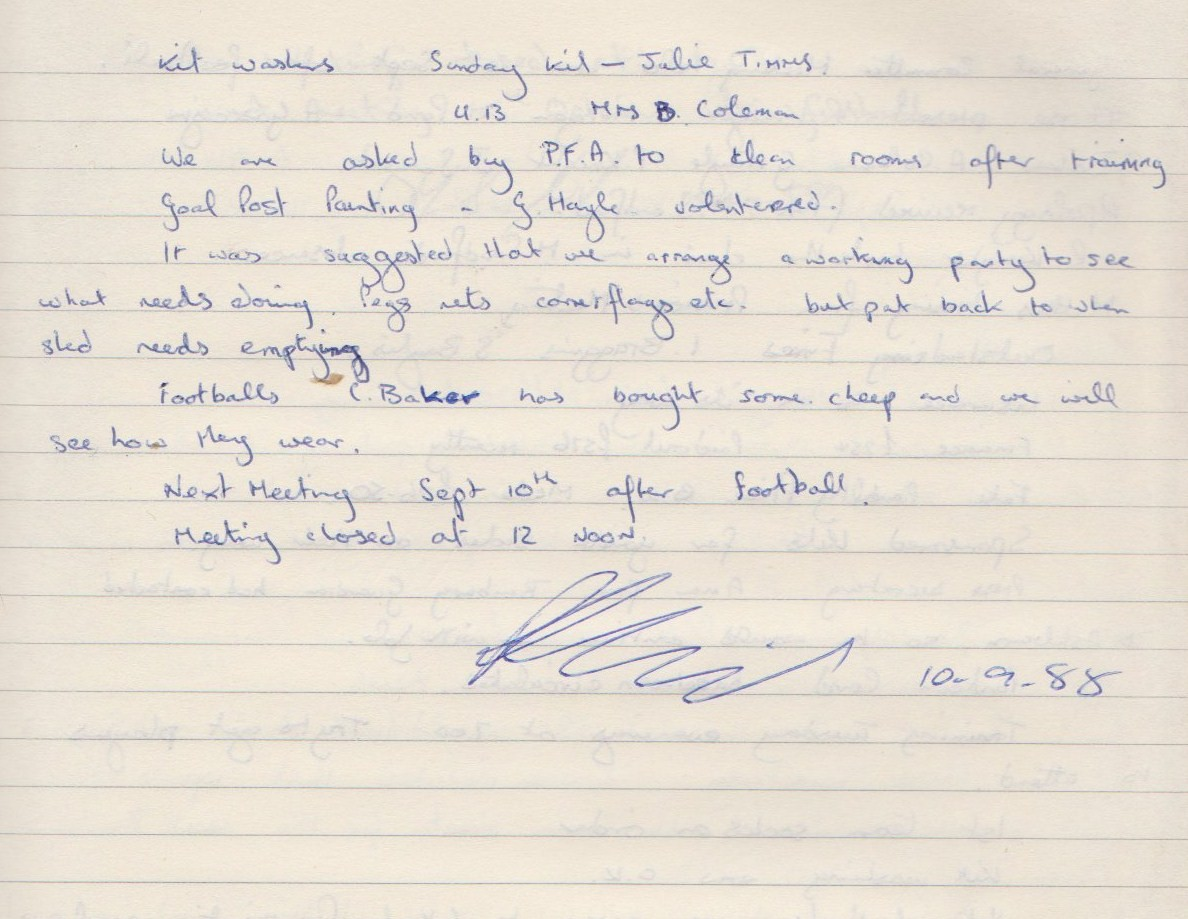 Kit washers Sunday Kit - Julie Timms.
U.13 Mrs B. Coleman
We are asked buy P.F.A. to clean rooms after training
Goal Post Painting - G Hayle volenteered.
It was suggested that we arrange a working party to see
what needs doing. Pegs nets cornerflags etc. but put back to when
shed needs emptying
Footballs C. Baker has bought some cheep and we will
see how they wear.
Next Meeting Sept 10th after football.
Meeting closed at 12 NOON.
10-9-88